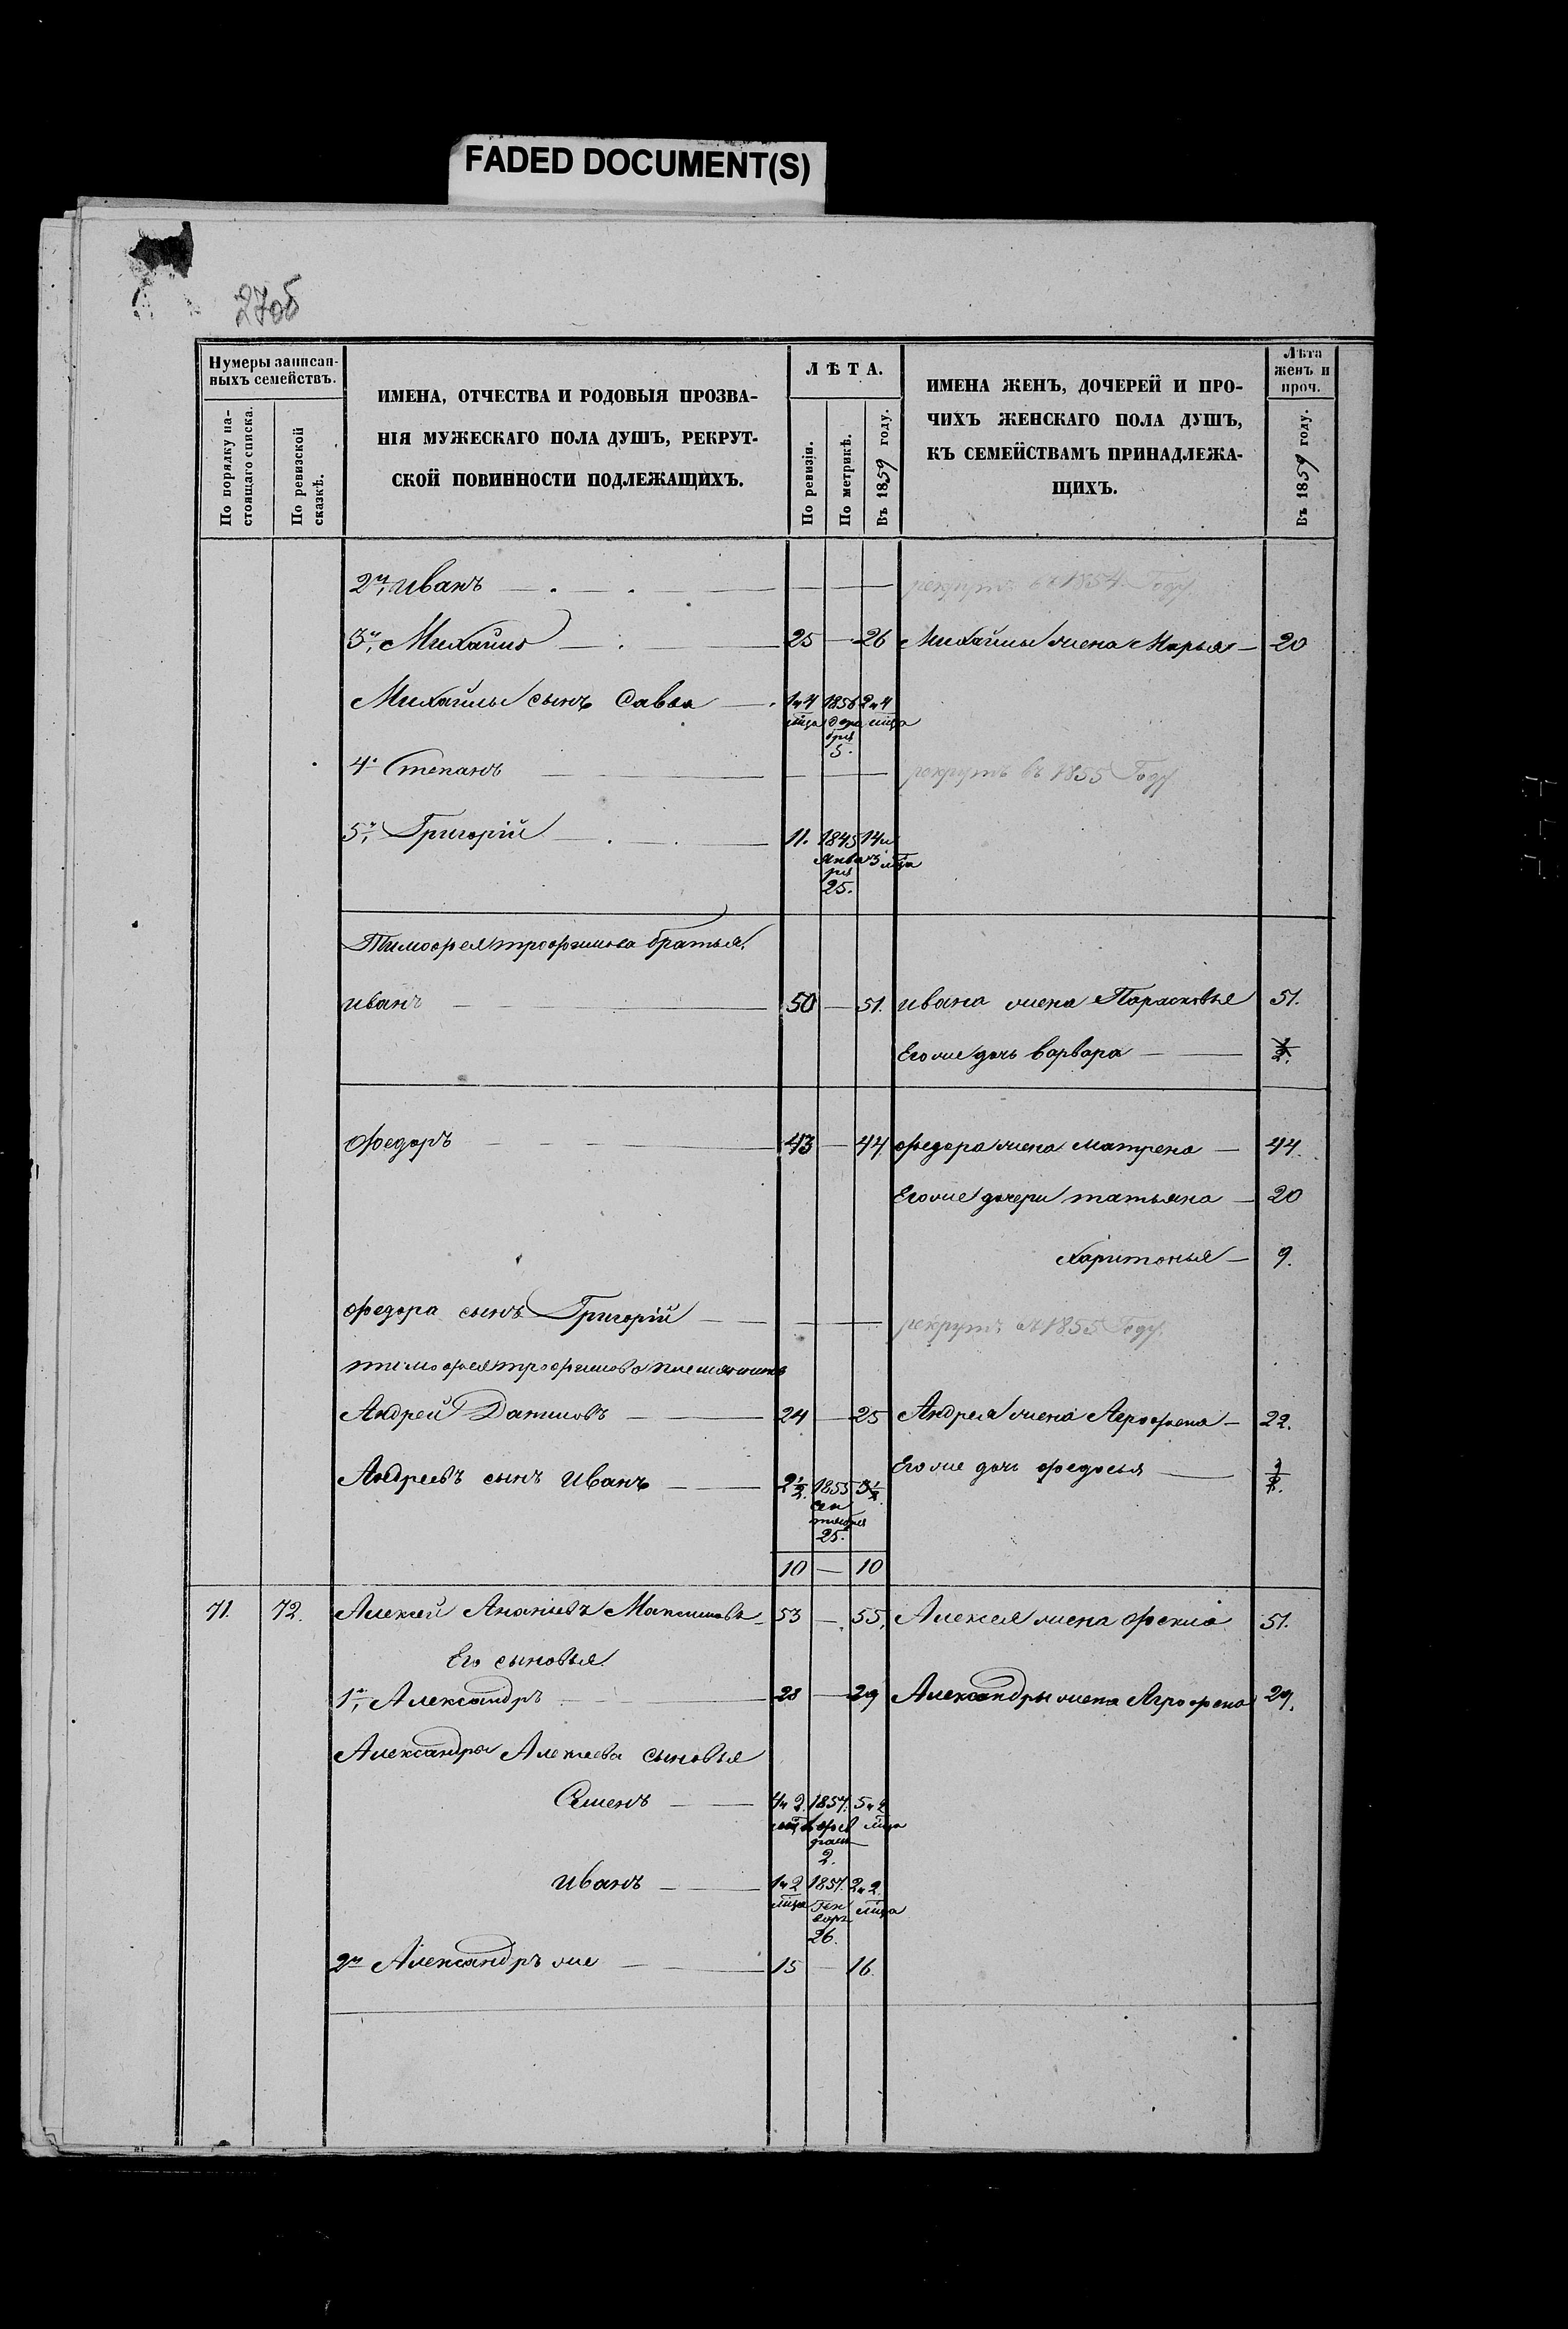 FADED DOCUMENT(S)
270б
Нумеры записан-
ныхъ семействъ.
По порядку на-
стоящаго списка.
По ревизской
сказкѣ.
ИМЕНА, ОТЧЕСТВА И РОДОВЫЯ ПРОЗВА-
НІЯ МУЖЕСКАГО ПОЛА ДУШЪ, РЕКРУТ-
СКОЙ ПОВИННОСТИ ПОДЛЕЖАЩИХЪ.
ЛѢТА.
По ревизіи.
По метрикѣ.
Въ 1859 году.
ИМЕНА ЖЕНЪ, ДОЧЕРЕЙ И ПРО-
ЧИХЪ ЖЕНСКАГО ПОЛА ДУШЪ,
КЪ СЕМЕЙСТВАМЪ ПРИНАДЛЕЖА-
ЩИХЪ.
Лѣта
женъ и
проч.
Въ 1859 году.
2й, Иванъ — — — рекрутъ въ 1854 Году
3й, Михайло 25 — 26 Михайлы жена Марья 20
Михайлы сынъ Савва 1 и 4 1856 2 и 4
мѣца мѣца
5.
4й Степанъ — — — рекрутъ въ 1855 Году
5й, Григорій 11. 1845 14 и
Янва 3 мѣца
ря
25.
Тимофея Трофимова братья.
Иванъ 50 — 51. Ивана жена Парасковья 51.
Его же дочь Варвара
Федоръ 43 — 44 Федора жена Матрена 44.
Его же дочери Татьяна 20
Харитонья 9.
Федора сынъ Григорій — — — рекрутъ въ 1855 Году.
Тимофея Трофимова племянникъ
Андрей Даниловъ 24 — 25 Андрея жена Агрофена 22.
Его же дочь Федосья
Андреевъ сынъ Иванъ 2½. 1855 3½.
Сен
тября
25.
10 — 10
71. 72. Алексей Ананьевъ Максимовъ 53 — 55. Алексея жена Фекла 51.
Его сыновья.
1й, Александръ 28 — 29 Александры жена Агрофена 29.
Александра Алексеева сыновья
Семенъ 4 и 2. 1857. 5 и 2
мѣца
2.
Иванъ 1 и 2 1857. 2 и 2.
мѣца Ген мѣца
варя
26.
2й Александръ же 15 — 16.